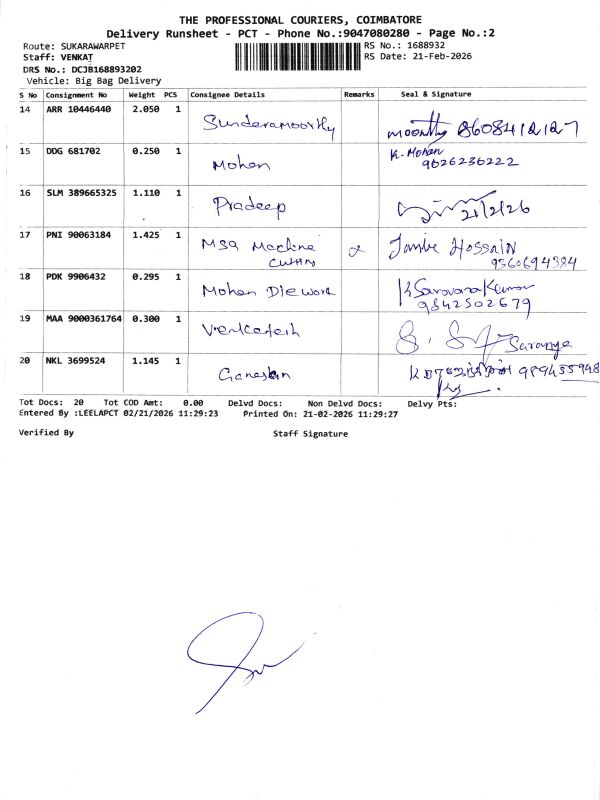 THE PROFESSIONAL COURIERS, COIMBATORE
Delivery Runsheet - PCT - Phone No.:9047080280 - Page No.:2
Route: SUKARAWARPET RS No.: 1688932
Staff: VENKAT RS Date: 21-Feb-2026
DRS No.: DCJB168893202
Vehicle: Big Bag Delivery
S No Consignment No Weight PCS Consignee Details Remarks Seal & Signature
14 ARR 10446440 2.050 1 Sunderamoorthy moorthy 8608412127
15 DDG 681702 0.250 1 Mohan K. Mohan
9626236222
16 SLM 389665325 1.110 1 Pradeep 21/2/26
17 PNI 90063184 1.425 1 MSA Machine Hossain
cutting 9360694384
18 PDK 9906432 0.295 1 Mohan Die work K Saravana Kumar
9842502679
19 MAA 9000361764 0.300 1 Venkatesh Saranya
20 NKL 3699524 1.145 1 Ganeshan 9894559948
Tot Docs: 20 Tot COD Amt: 0.00 Delvd Docs: Non Delvd Docs: Delvy Pts:
Entered By :LEELAPCT 02/21/2026 11:29:23 Printed On: 21-02-2026 11:29:27
Verified By Staff Signature